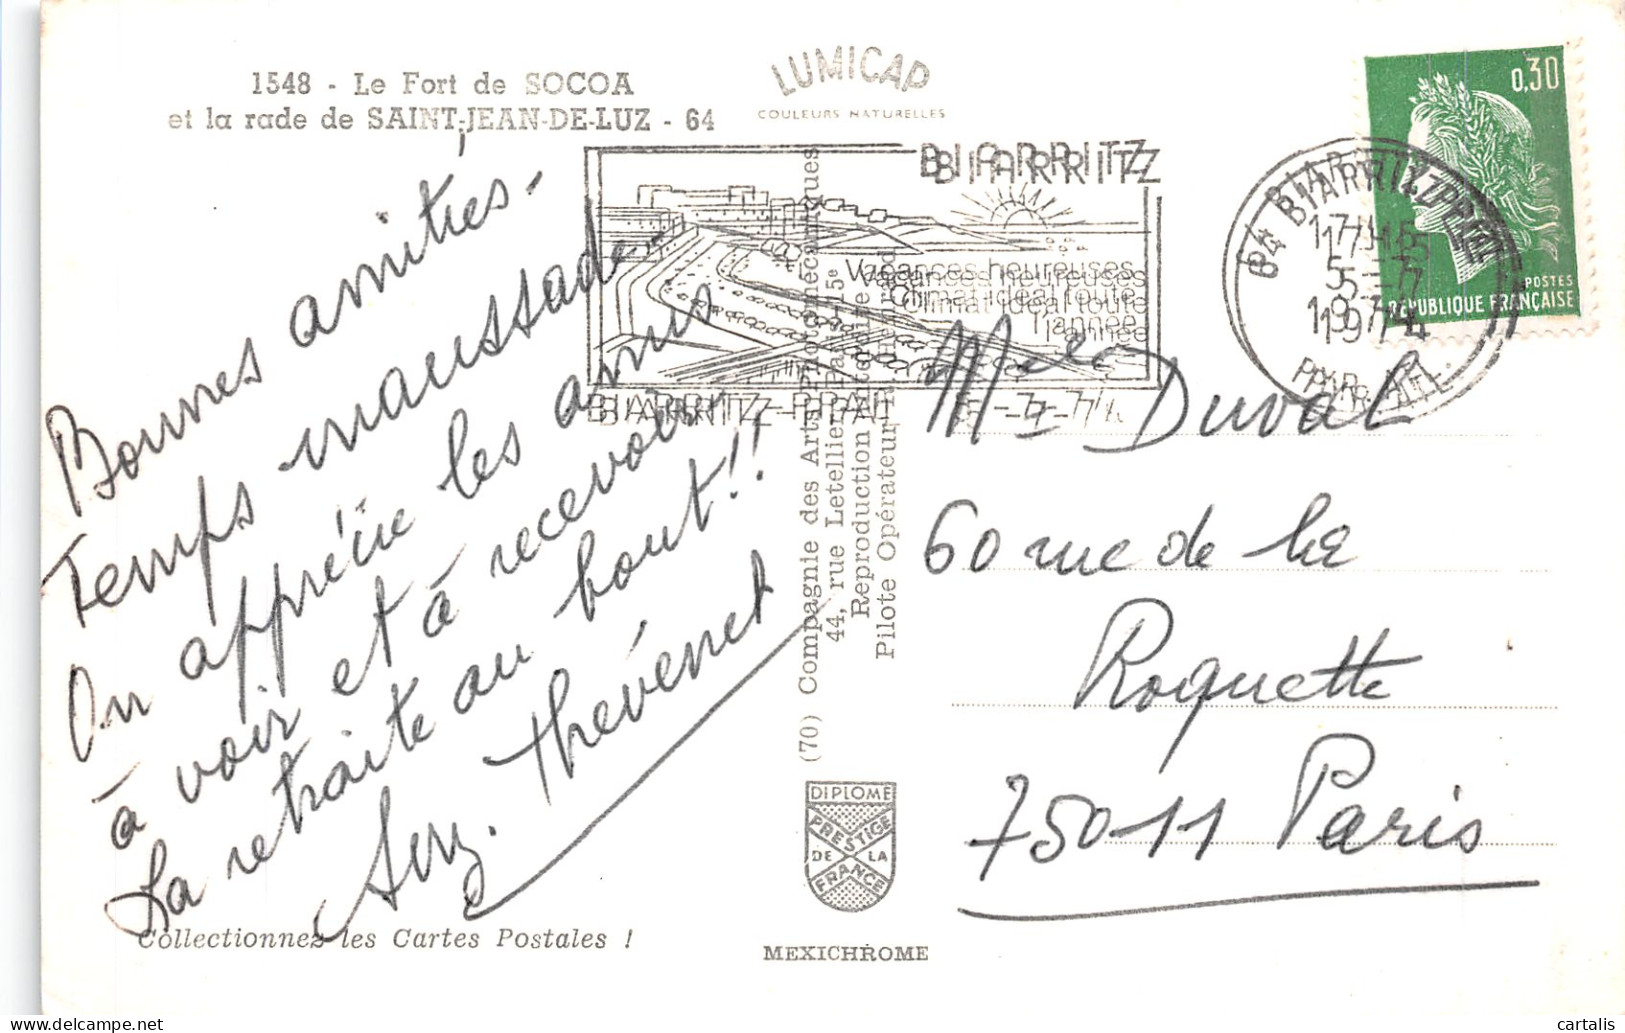 1548 - Le Fort de SOCOA
et la rade de SAINT-JEAN-DE-LUZ - 64
LUMICAP
COULEURS NATURELLES
0,30
POSTES
REPUBLIQUE FRANÇAISE
BIARRITZ
Vacances heureuses
Climat idéal toute
l'année
BIARRITZ-PPAL 5-7-74
64 BIARRITZ PPAL
5-7
1974
PYR. ATL.
Bonnes amitiés.
Temps maussade.
On apprécie les amis
à voir et à recevoir
La retraite au bout!!
Thévenet
(70) Compagnie des Arts Photomécaniques
44, rue Letellier Paris-15e
Reproduction interdite
Pilote Opérateur
Mme Duval
60 rue de la
Roquette
75011 Paris
DIPLOME
PRESTIGE
DE LA
FRANCE
Collectionnez les Cartes Postales !
MEXICHROME
cartalis
delcampe.net